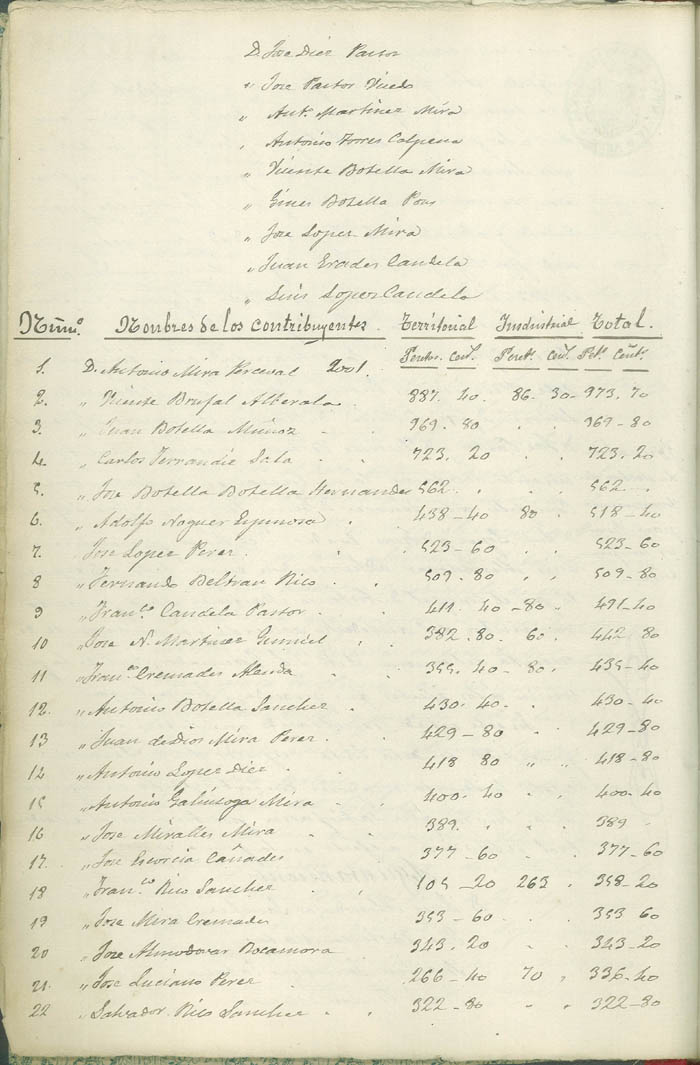 D. Jose Diez Pastor
" Jose Pastor
" Ant.º Martinez Mira
" Antonio Torres Calpena
" Vicente Botella Mira
" Gines Botella Pons
" Jose Lopez Mira
" Juan Erades Candela
" Luis Lopez Candela
Núm.º Nombres de los contribuyentes. Territorial Industrial Total.
Pesetas. Cent.s Peset.s Cent.s Pts. Cents.
1. D. Antonio Mira Perceval 2001.
2. " Vicente Brufal 887. 40. 86. 30- 973, 70
3. " Juan Botella Muñoz - - 969. 80 . . 969-80
4. " Carlos Ferrandiz Sala . 723. 20 . . 723. 20
5. " Jose Botella Botella Hernandez 562. . . . 562 . .
6. " Adolfo Noguer Espinosa . 438-40 80 . 518-40
7. " Jose Lopez Perez . . 523-60 . . 523-60
8 " Fernando Beltran Rico . . 509. 80 . . 509-80
9 " Fran.co Candela Pastor . . 411. 40 -80. . 491-40
10 " Jose N. Martinez . . 382. 80. 60. . 442. 80
11 " Fran.co Cremades . 355. 40- 80. . 435-40
12. " Antonio Botella Sanchez . . 430. 40. . 430-40
13 " Juan de Dios Mira Perez . . 429-80 . . 429-80
14 " Antonio Lopez Diez . . 418 80 " " 418-80
15 " Antonio Galinsoga Mira . . 400. 40 . . 400-40
16 " Jose Miralles Mira . . 389. . . . 389 .
17. " Jose Escorcia Cañades 377-60 . . 377-60
18 " Fran.co Rico Sanchez . . 105-20 263 . 368-20
19 " Jose Mira Cremades 353-60. . . 353 60
20 " Jose Almodovar Bocamora . 343. 20 . . 343-20
21. " Jose Luciano Perez . 266-40 70 , 336-40
22 " Salvador Rico Sanchez . . 322-80 " . 322-80